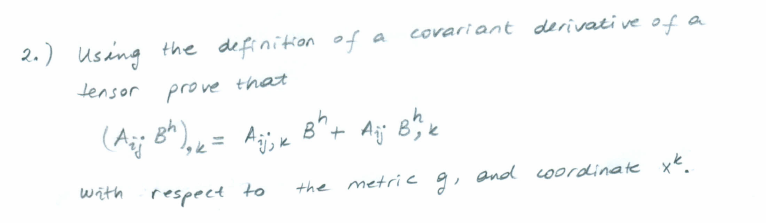 2.) Using the definition of a covariant derivative of a
tensor prove that
(A_{ij} B^h)_{,k} = A_{ij,k} B^h + A_{ij} B^h_{,k}
with respect to the metric g, and coordinate x^k.